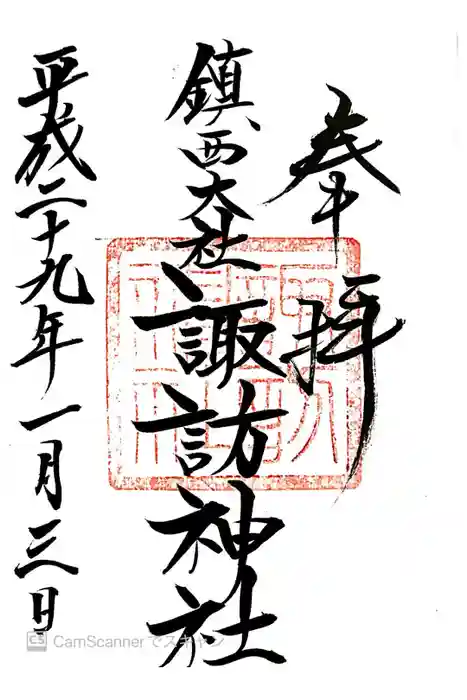 奉拝
鎮西大社
諏訪神社
平成二十九年一月三日
CS CamScannerでスキャン